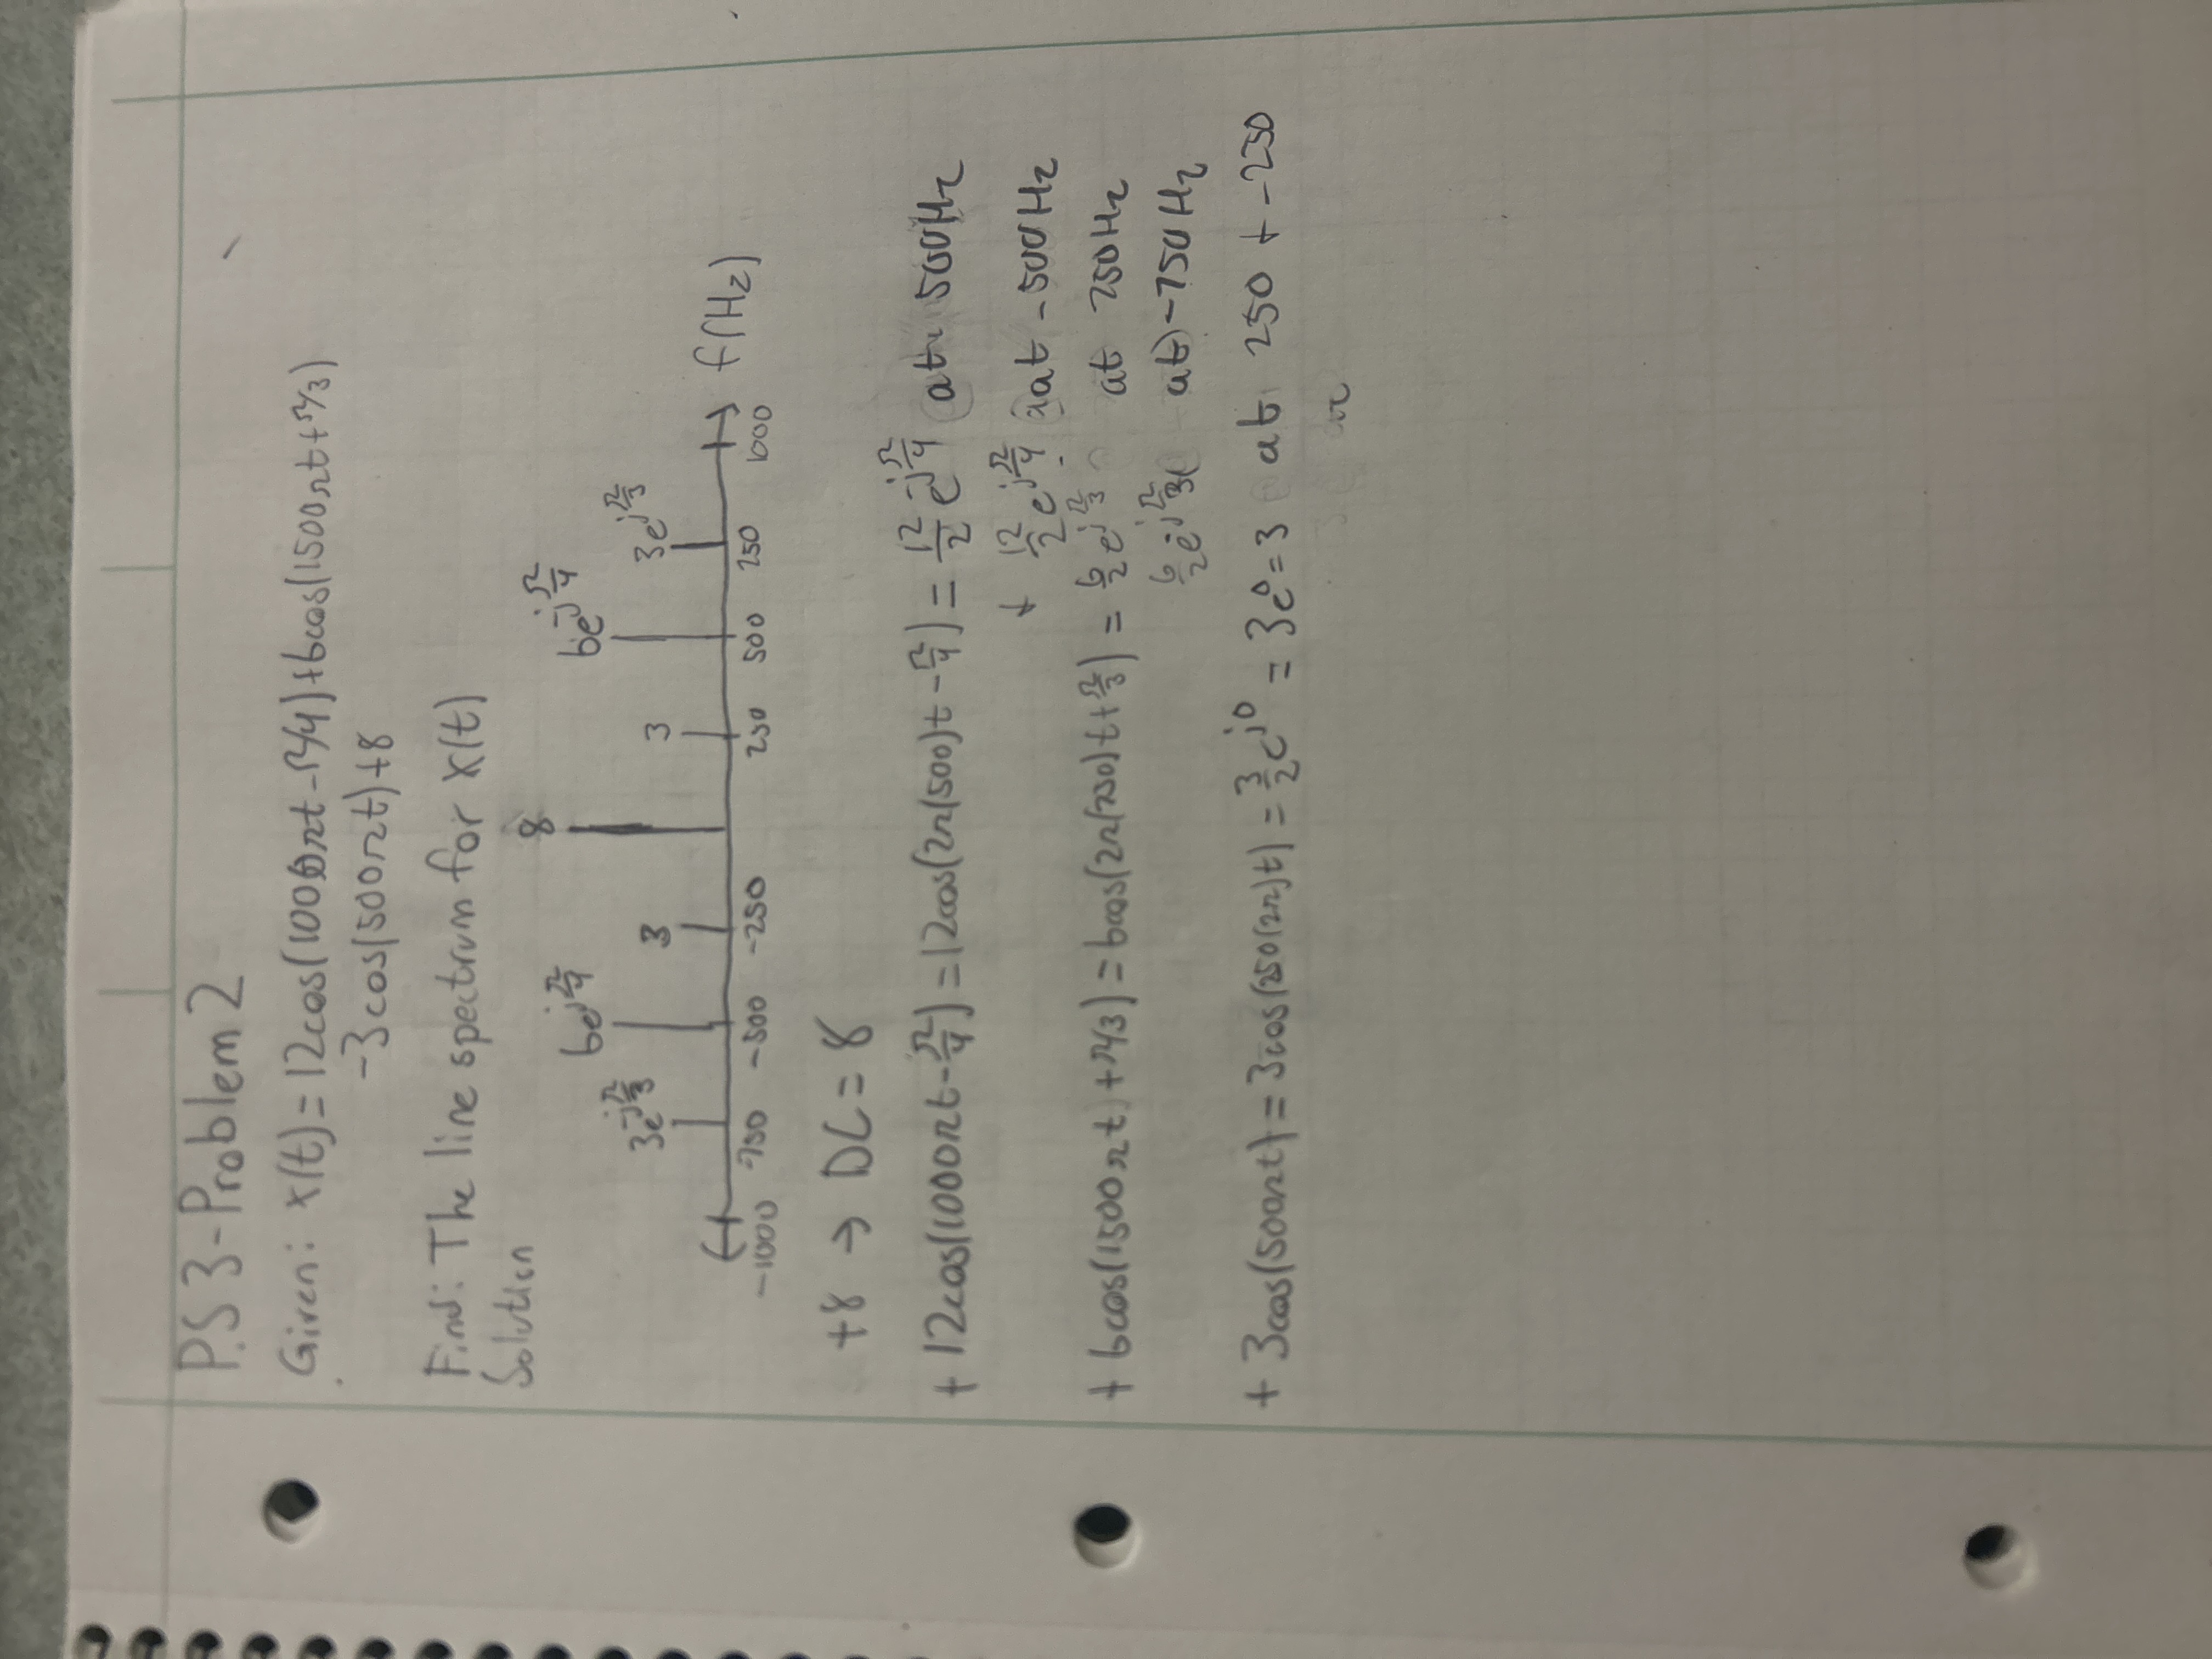 P.S 3-Problem 2
Given: x(t)=12cos(1000πt-π/4)+6cos(1500πt+π/3)
-3cos(500πt)+8
Find: The line spectrum for x(t)
Solution
3e^{-jπ/3} 6e^{jπ/4} 3 8 3 6e^{-jπ/4} 3e^{jπ/3}
-1000 -750 -500 -250 250 500 250 1000 f(Hz)
+8 → DC = 8
+ 12cos(1000πt-π/4)=12cos(2π(500)t-π/4)=12/2 e^{-jπ/4} at 500Hz
+ 12/2 e^{jπ/4} at -500Hz
+ 6cos(1500πt+π/3)=6cos(2π(750)t+π/3)=6/2 e^{jπ/3} at 750Hz
6/2 e^{-jπ/3} at -750Hz
+ 3cos(500πt)=3cos(250(2π)t)=3/2 e^{j0} = 3e^0=3 at 250 + -250